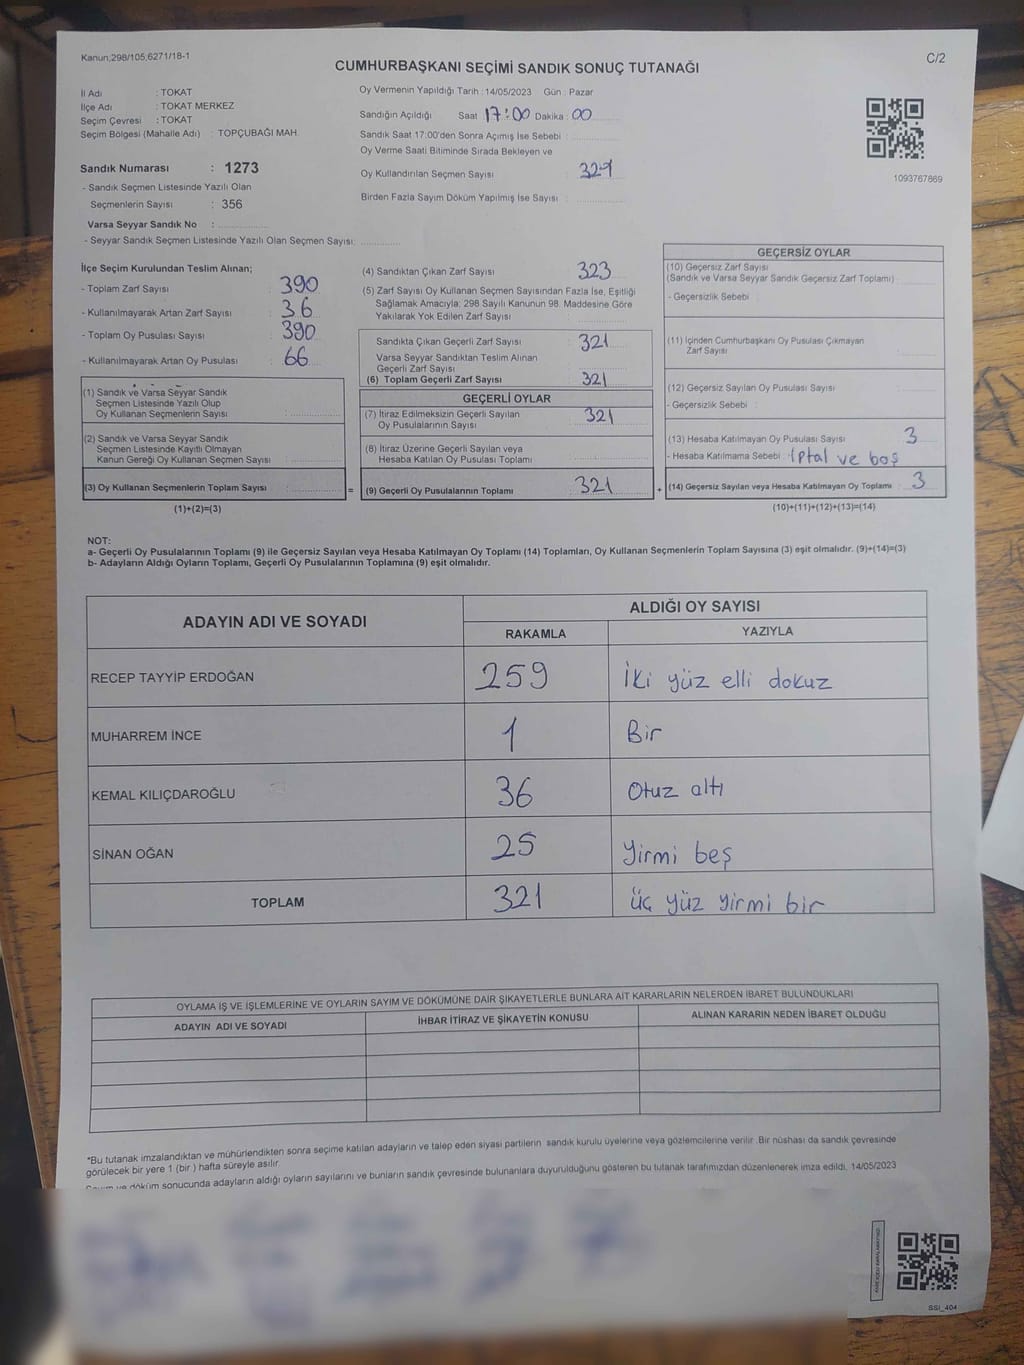 Kanun;298/105;6271/18-1
C/2
CUMHURBAŞKANI SEÇİMİ SANDIK SONUÇ TUTANAĞI
İl Adı : TOKAT
İlçe Adı : TOKAT MERKEZ
Seçim Çevresi : TOKAT
Seçim Bölgesi (Mahalle Adı) : TOPÇUBAĞI MAH.
Sandık Numarası : 1273
- Sandık Seçmen Listesinde Yazılı Olan
Seçmenlerin Sayısı : 356
Varsa Seyyar Sandık No :
- Seyyar Sandık Seçmen Listesinde Yazılı Olan Seçmen Sayısı:
Oy Vermenin Yapıldığı Tarih : 14/05/2023 Gün : Pazar
Sandığın Açıldığı Saat 17:00 Dakika : 00
Sandık Saat 17:00'den Sonra Açımış İse Sebebi :
Oy Verme Saati Bitiminde Sırada Bekleyen ve
Oy Kullandırılan Seçmen Sayısı
Birden Fazla Sayım Döküm Yapılmış İse Sayısı :
1093767869
İlçe Seçim Kurulundan Teslim Alınan;
- Toplam Zarf Sayısı : 390
- Kullanılmayarak Artan Zarf Sayısı : 36
- Toplam Oy Pusulası Sayısı : 390
- Kullanılmayarak Artan Oy Pusulası : 66
(1) Sandık ve Varsa Seyyar Sandık
Seçmen Listesinde Yazılı Olup
Oy Kullanan Seçmenlerin Sayısı :
(2) Sandık ve Varsa Seyyar Sandık
Seçmen Listesinde Kayıtlı Olmayan
Kanun Gereği Oy Kullanan Seçmen Sayısı :
(3) Oy Kullanan Seçmenlerin Toplam Sayısı : =
(1)+(2)=(3)
(4) Sandıktan Çıkan Zarf Sayısı : 323
(5) Zarf Sayısı Oy Kullanan Seçmen Sayısından Fazla İse, Eşitliği
Sağlamak Amacıyla; 298 Sayılı Kanunun 98. Maddesine Göre
Yakılarak Yok Edilen Zarf Sayısı :
Sandıkta Çıkan Geçerli Zarf Sayısı : 321
Varsa Seyyar Sandıktan Teslim Alınan
Geçerli Zarf Sayısı :
(6) Toplam Geçerli Zarf Sayısı : 321
GEÇERLİ OYLAR
(7) İtiraz Edilmeksizin Geçerli Sayılan
Oy Pusulalarının Sayısı : 321
(8) İtiraz Üzerine Geçerli Sayılan veya
Hesaba Katılan Oy Pusulası Toplamı :
(9) Geçerli Oy Pusulalarının Toplamı : 321 +
GEÇERSİZ OYLAR
(10) Geçersiz Zarf Sayısı
(Sandık ve Varsa Seyyar Sandık Geçersiz Zarf Toplamı) :
- Geçersizlik Sebebi :
(11) İçinden Cumhurbaşkanı Oy Pusulası Çıkmayan
Zarf Sayısı :
(12) Geçersiz Sayılan Oy Pusulası Sayısı :
- Geçersizlik Sebebi :
(13) Hesaba Katılmayan Oy Pusulası Sayısı : 3
- Hesaba Katılmama Sebebi : İptal ve boş
(14) Geçersiz Sayılan veya Hesaba Katılmayan Oy Toplamı : 3
(10)+(11)+(12)+(13)=(14)
NOT:
a- Geçerli Oy Pusulalarının Toplamı (9) ile Geçersiz Sayılan veya Hesaba Katılmayan Oy Toplamı (14) Toplamları, Oy Kullanan Seçmenlerin Toplam Sayısına (3) eşit olmalıdır. (9)+(14)=(3)
b- Adayların Aldığı Oyların Toplamı, Geçerli Oy Pusulalarının Toplamına (9) eşit olmalıdır.
ADAYIN ADI VE SOYADI ALDIĞI OY SAYISI
RAKAMLA YAZIYLA
RECEP TAYYİP ERDOĞAN 259 İki yüz elli dokuz
MUHARREM İNCE 1 Bir
KEMAL KILIÇDAROĞLU 36 Otuz altı
SİNAN OĞAN 25 Yirmi beş
TOPLAM 321 üç yüz yirmi bir
OYLAMA İŞ VE İŞLEMLERİNE VE OYLARIN SAYIM VE DÖKÜMÜNE DAİR ŞİKAYETLERLE BUNLARA AİT KARARLARIN NELERDEN İBARET BULUNDUKLARI
ADAYIN ADI VE SOYADI İHBAR İTİRAZ VE ŞİKAYETİN KONUSU ALINAN KARARIN NEDEN İBARET OLDUĞU
*Bu tutanak imzalandıktan ve mühürlendikten sonra seçime katılan adayların ve talep eden siyasi partilerin sandık kurulu üyelerine veya gözlemcilerine verilir .Bir nüshası da sandık çevresinde
görülecek bir yere 1 (bir ) hafta süreyle asılır.
Sayım ve döküm sonucunda adayların aldığı oyların sayılarını ve bunların sandık çevresinde bulunanlara duyurulduğunu gösteren bu tutanak tarafımızdan düzenlenerek imza edildi. 14/05/2023
SSİ_404